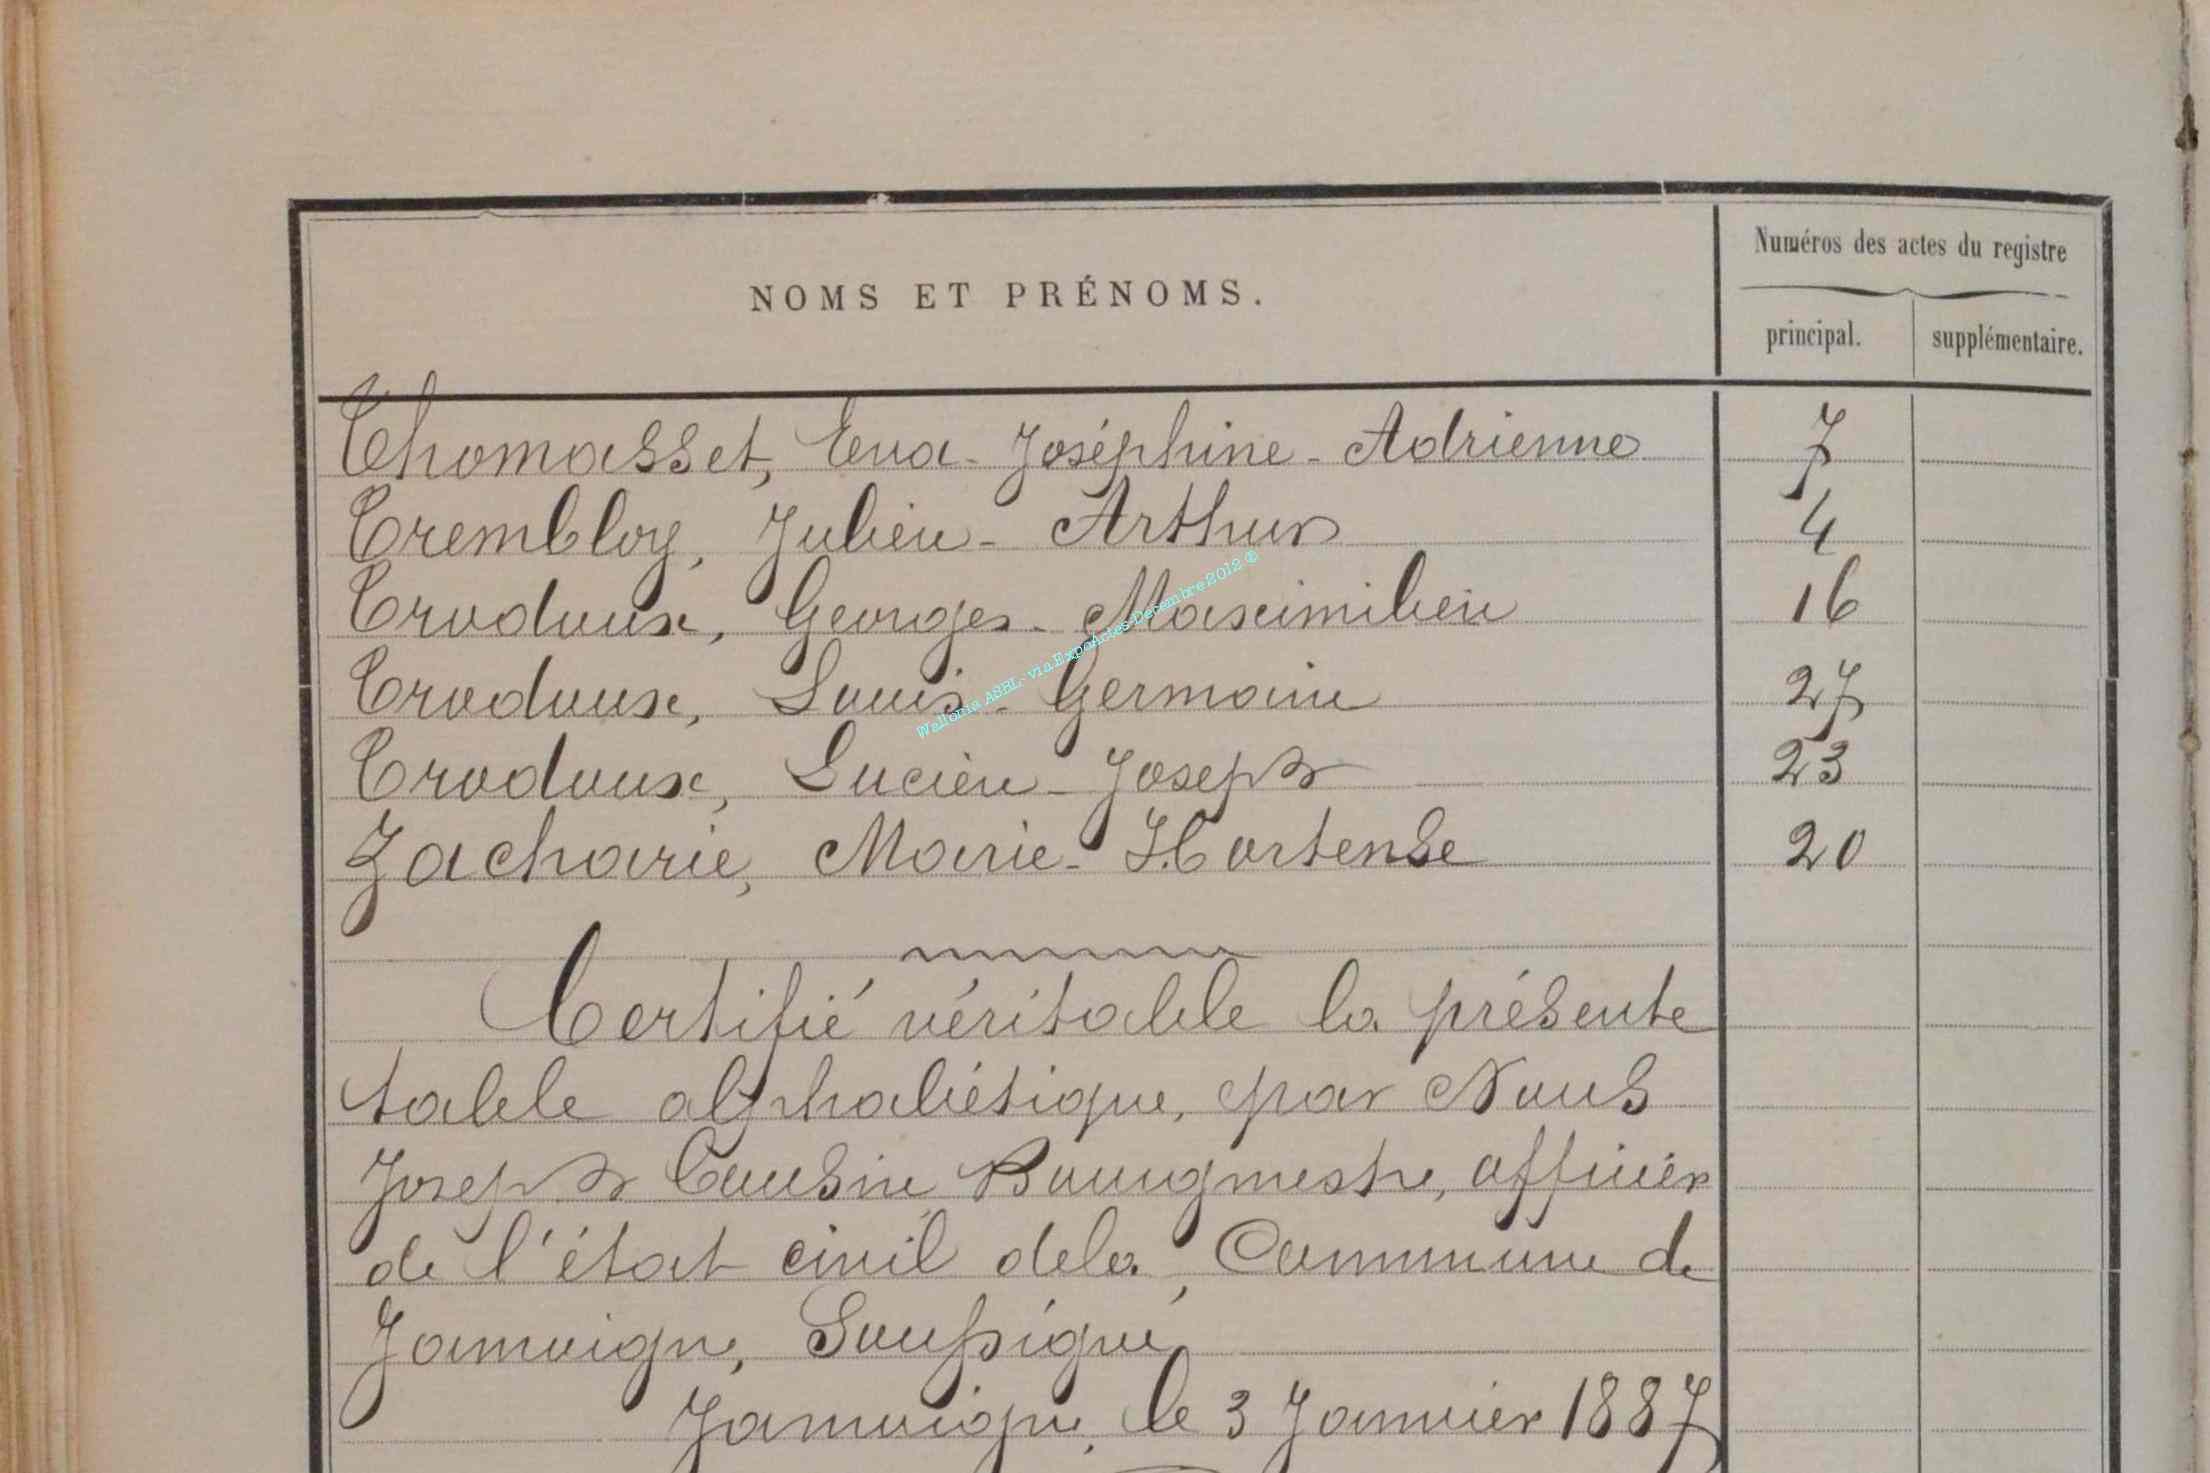 Numéros des actes du registre
NOMS ET PRÉNOMS.
principal. supplémentaire.
Thomasset, Eva-Joséphine-Adrienne 7
Trembloy, Julien-Arthur 4
Trodoux, Georges-Maximilien 16
Trodoux, Louis-Germain 27
Trodoux, Lucien-Joseph 23
Zacharie, Marie-Hortense 20
Wallonia ASBL - via ExpoActes-Decembre 2012 ®
Certifié véritable la présente
table alphabétique, par Nous
Joseph Cousin Bourgmestre, officier
de l'état civil de la Commune de
Jamoigne, Soussigné
Jamoigne, le 3 Janvier 1887